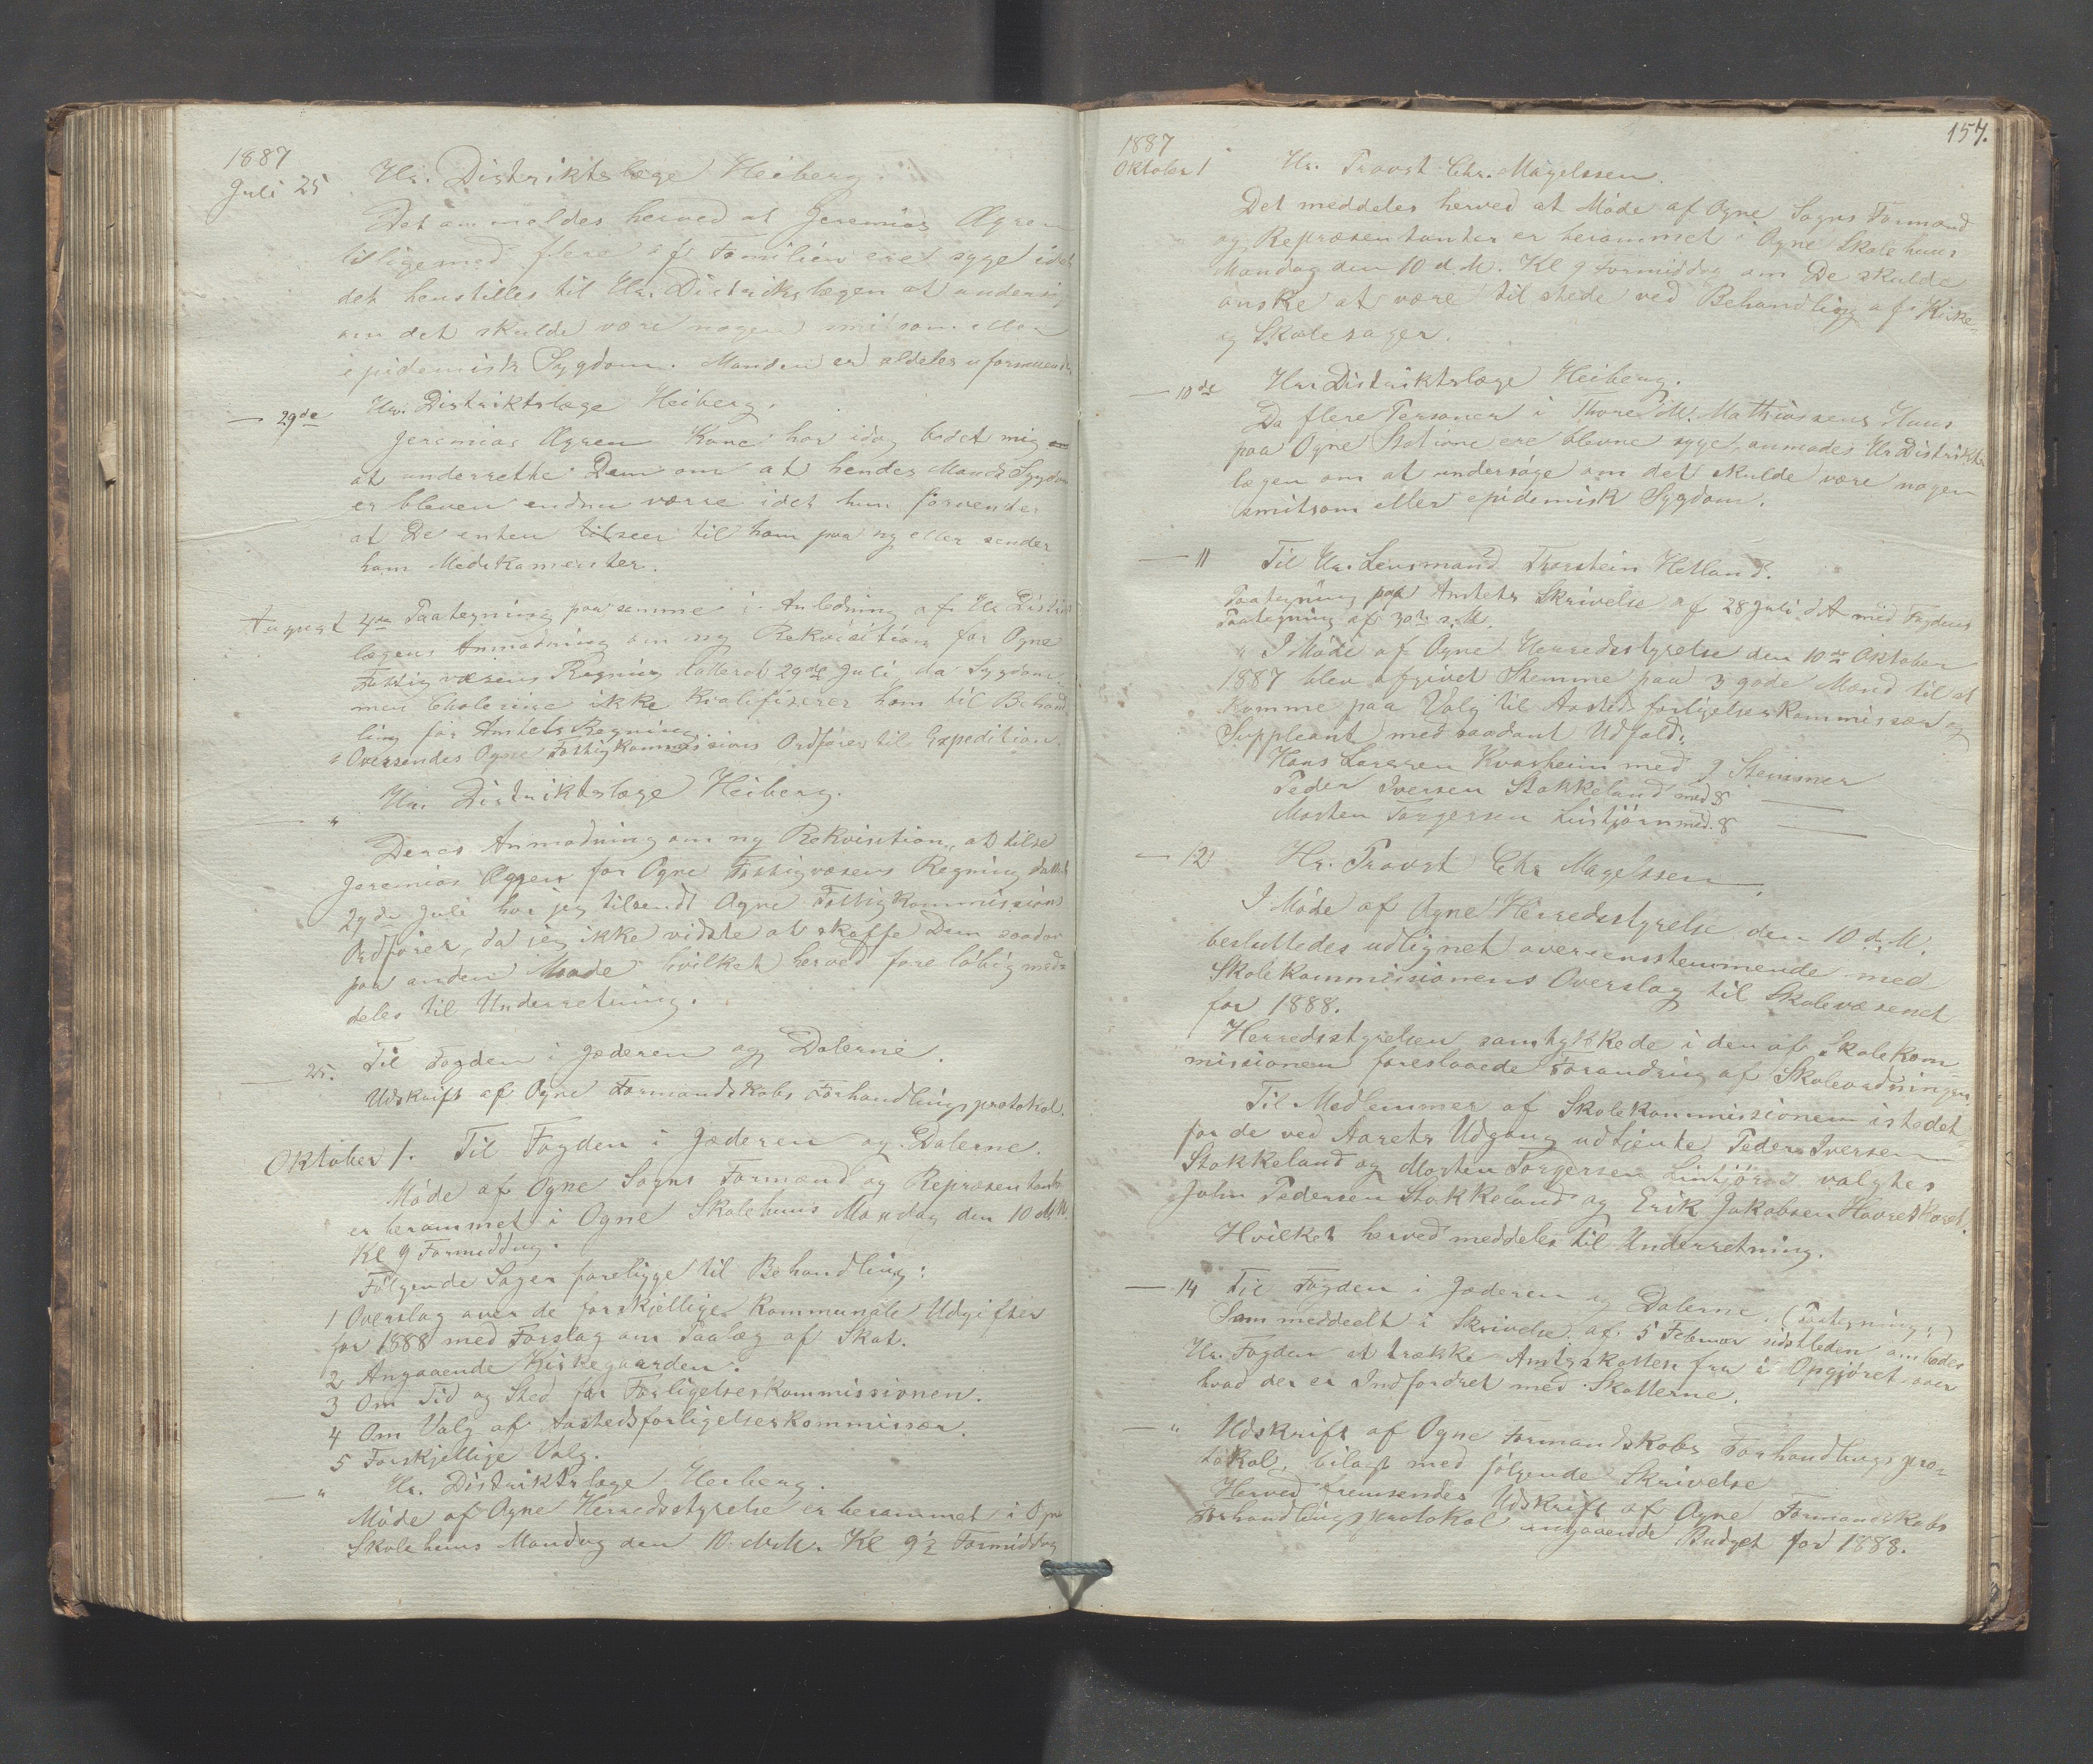 1887
Juli 25 Hr. Distriktslæge Heiberg.
Det anmeldes herved at Jeremias Ægren
tilligemed flere af Familien ere syge idet
det henstilles til Hr. Distriktslægen at undersøg
om det skulde være nogen smitsom eller
epidemisk Sygdom. Manden er aldeles uformuende.
— 29de Hr. Distriktslæge Heiberg.
Jeremias Ægren Kone har idag bedet mig
at underrette Dem om at hendes Mands Sygdom
er bleven endnu værre idet hun forventer
at De enten tilseer til ham paa ny eller sender
ham Medikamenter.
August 4de Paategning paa samme i Anledning af Hr Distrikts
lægens Anmodning om ny Rekvisition for Ogne
Fattigvæsens Regning dateret 29de Juli, da Sygdom-
men Cholerine ikke kvalifiserer ham til Behand
ling for Amtets Regning.
Oversendes Ogne Fattigkommissions Ordfører til Expedition.
— " Hr. Distriktslæge Heiberg.
Deres Anmodning om ny Rekvisition, at tilse
Jeremias Ægren for Ogne Fattigvæsens Regning datert
29de Juli har jeg tilsendt Ogne Fattigkommissions
Ordfører, da jeg ikke vidste at skaffe Dem saadan
paa anden Maade hvilket herved foreløbig med-
deles til Underretning.
— 25. Til Fogden i Jæderen og Dalerne.
Udskrift af Ogne Formandskabs Forhandlingsprotokol.
Oktober 1. Til Fogden i Jæderen og Dalerne.
Møde af Ogne Sogns Formænd og Repræsentanter
er berammet i Ogne Skolehuus Mandag den 10 d M.
Kl 9 Formiddag.
Følgende Sager foreligge til Behandling:
1 Overslag over de forskjellige kommunale Udgifter
for 1888 med Forslag om Paalæg af Skat.
2 Angaaende Kirkegaarden.
3 Om Tid og Sted for Forligelseskommissionen.
4 Om Valg af Aastedsforligelseskommissær.
5 Forskjellige Valg.
— " Hr. Distriktslæge Heiberg.
Møde af Ogne Herredsstyrelse er berammet i Ogne
Skolehuus Mandag den 10 d. M. Kl 9½ Formiddag
157.
1887
Oktober 1 Hr. Provst Chr. Magelssen.
Det meddeles herved at Møde af Ogne Sogns Formænd
og Repræsentanter er berammet i Ogne Skolehuus
Mandag den 10 d. M. Kl 9 Formiddag om De skulde
ønske at være til stede ved Behandling af Kirke-
og Skolesager.
— 10de Hr. Distriktslæge Heiberg.
Da flere Personer i Thore M. Mathiassens Huus
paa Ogne Station ere blevne syge, anmodes Hr Distrikts
lægen om at undersøge om det skulde være nogen
smitsom eller epidemisk Sygdom.
— 11 Til Hr. Lensmand Thorstein Hetland.
Paategning paa Amtets Skrivelse af 28 Juli d A med Fogdens
Paategning af 30te s. M.
" I Møde af Ogne Herredsstyrelse den 10de Oktober
1887 blev afgivet Stemme paa 3 gode Mænd til at
komme paa Valg til Aasteds forligelseskommissær og
Suppleant med saadant Udfald:
Hans Larssen Kvasheim med 9 Stemmer
Peder Iversen Stokkeland med 8 —
Morten Torgersen Lintjørn med 8 —
— 12 Hr. Provst Chr Magelssen.
I Møde af Ogne Herredsstyrelse den 10 d. M.
besluttedes udlignet overensstemmende med
Skolekommissionens Overslag til Skolevæsenet
for 1888.
Herredsstyrelsen samtykkede i den af Skolekom-
missionen foreslaaede Forandring af Skoleordningen.
Til Medlemmer af Skolekommissionen istedet-
for de ved Aarets Udgang udtjente Peder Iversen
Stokkeland og Morten Torgersen Lintjørn valgtes
John Pedersen Stokkeland og Erik Jakobsen
Hvilket herved meddeles til Underretning.
— 14 Til Fogden i Jæderen og Dalerne. (Paategning:)
Som meddeelt i Skrivelse af 5 Februar sidstleden anmodes
Hr. Fogden at trække Amtsskatten fra i Opgjøret over
hvad der er Indfordret med Skatterne.
— " Udskrift af Ogne Formandskabs Forhandlingspro-
tokol, bilagt med følgende Skrivelse
Herved fremsendes Udskrift af Ogne Formandskabs
Forhandlingsprotokol angaaende Budget for 1888.